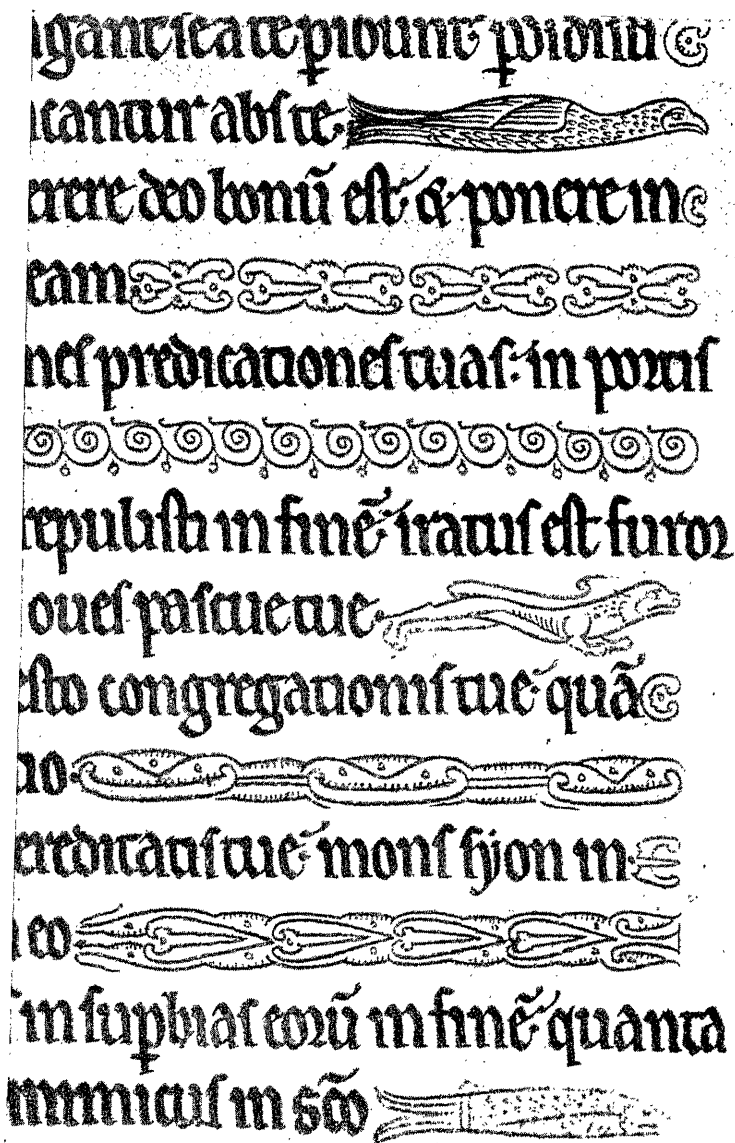 ngant se a te ꝑibunt: ꝑdidisti
cantur abs te.
erere deo bonū est: & ponere in
eam.
nes predicationes tuas: in portis
repulisti in finē: iratus est furor
oues pascue tue.
esto congregationis tue: quā
io.
ereditatis tue: mons syon in
eo
in suꝑbias eorū in finē: quanta
inimicus in sc̄o